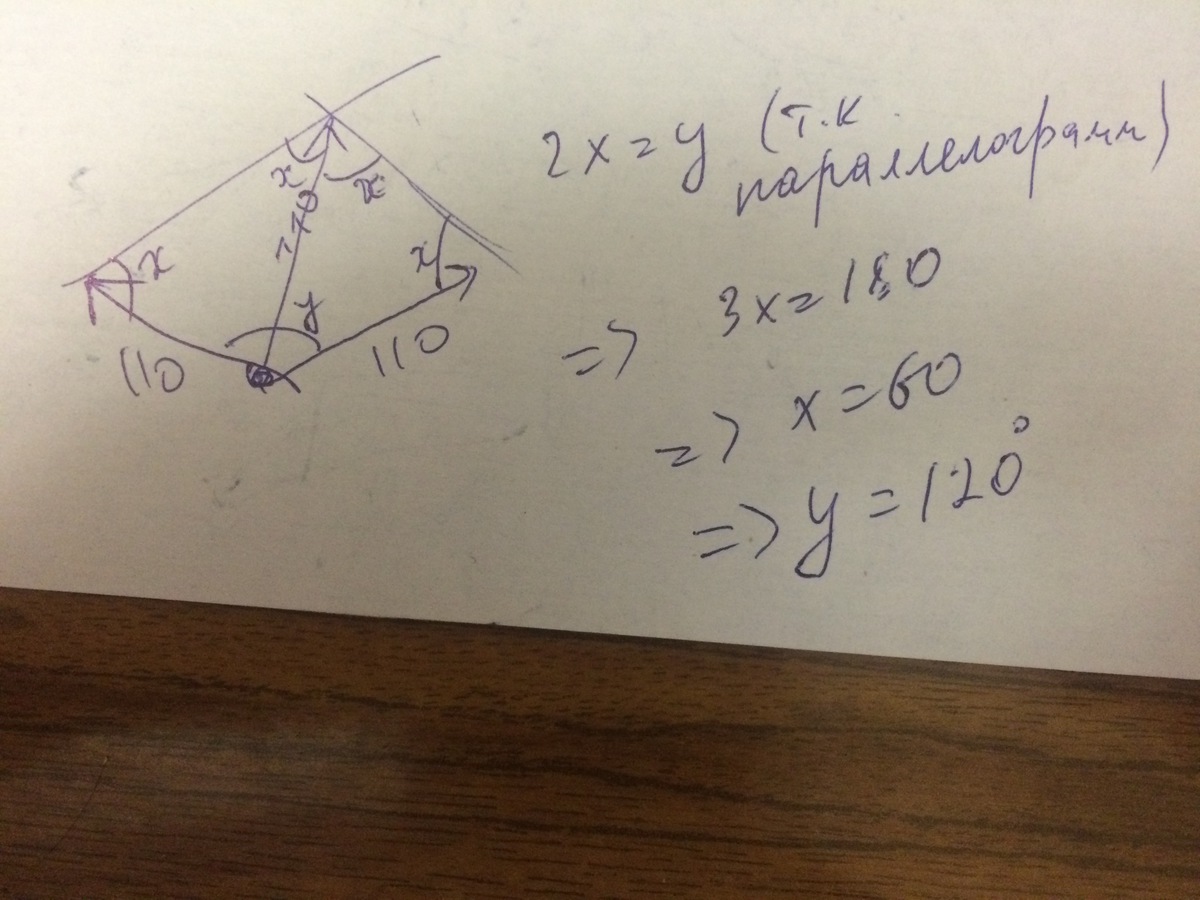 2x = y (т.к.
параллелограмм)
=> 3x = 180
=> x = 60
=> y = 120°
x
x
x
x
110
y
110
110